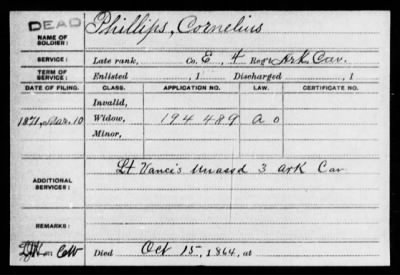 DEAD
NAME OF SOLDIER: Phillips, Cornelius
SERVICE: Late rank, Co. E, 4 Reg't Ark. Cav.
TERM OF SERVICE: Enlisted , 1 Discharged , 1
DATE OF FILING. CLASS. APPLICATION NO. LAW. CERTIFICATE NO.
Invalid,
1871, Mar. 10 Widow, 194 489 A o
Minor,
ADDITIONAL SERVICES: Lt Vance's Unassd 3 Ark Cav
REMARKS:
Died Oct 15, 1864, at